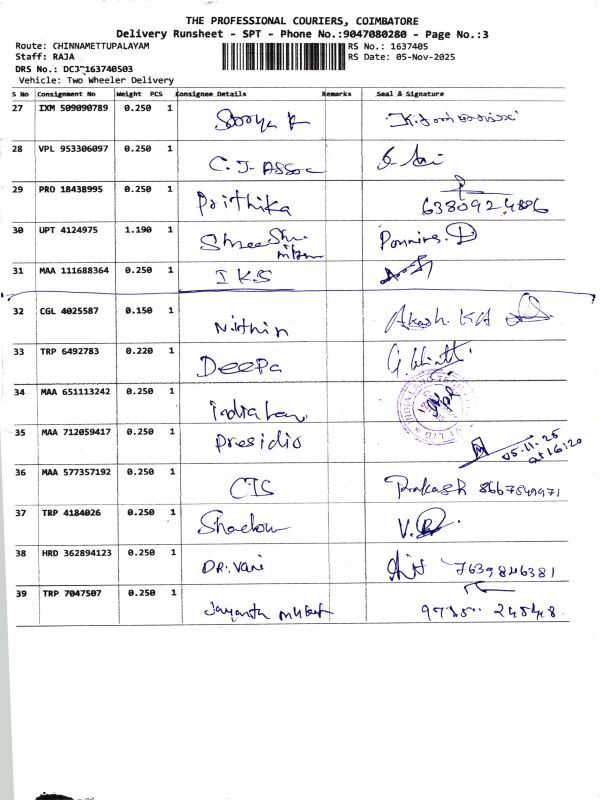 THE PROFESSIONAL COURIERS, COIMBATORE
Delivery Runsheet - SPT - Phone No.:9047080280 - Page No.:3
Route: CHINNAMETTUPALAYAM RS No.: 1637405
Staff: RAJA RS Date: 05-Nov-2025
DRS No.:
Vehicle: Two Wheeler Delivery
S No Consignment No Weight PCS Consignee Details Remarks Seal & Signature
27 IXM 509090789 0.250 1
28 VPL 953306097 0.250 1
C.J. Assoc
29 PRO 18438995 0.250 1
Prithika 6380924886
30 UPT 4124975 1.190 1
Shree
31 MAA 111688364 0.250 1
IKS
32 CGL 4025587 0.150 1
Nithin Akash. K.A
33 TRP 6492783 0.220 1
Deepa
34 MAA 651113242 0.250 1
35 MAA 712059417 0.250 1
Presidio 05.11.25
at 16:20
36 MAA 577357192 0.250 1
CTS Prakash 8667549971
37 TRP 4184026 0.250 1
Shadow
38 HRD 362894123 0.250 1
DR. Vani 7639846381
39 TRP 7047507 0.250 1